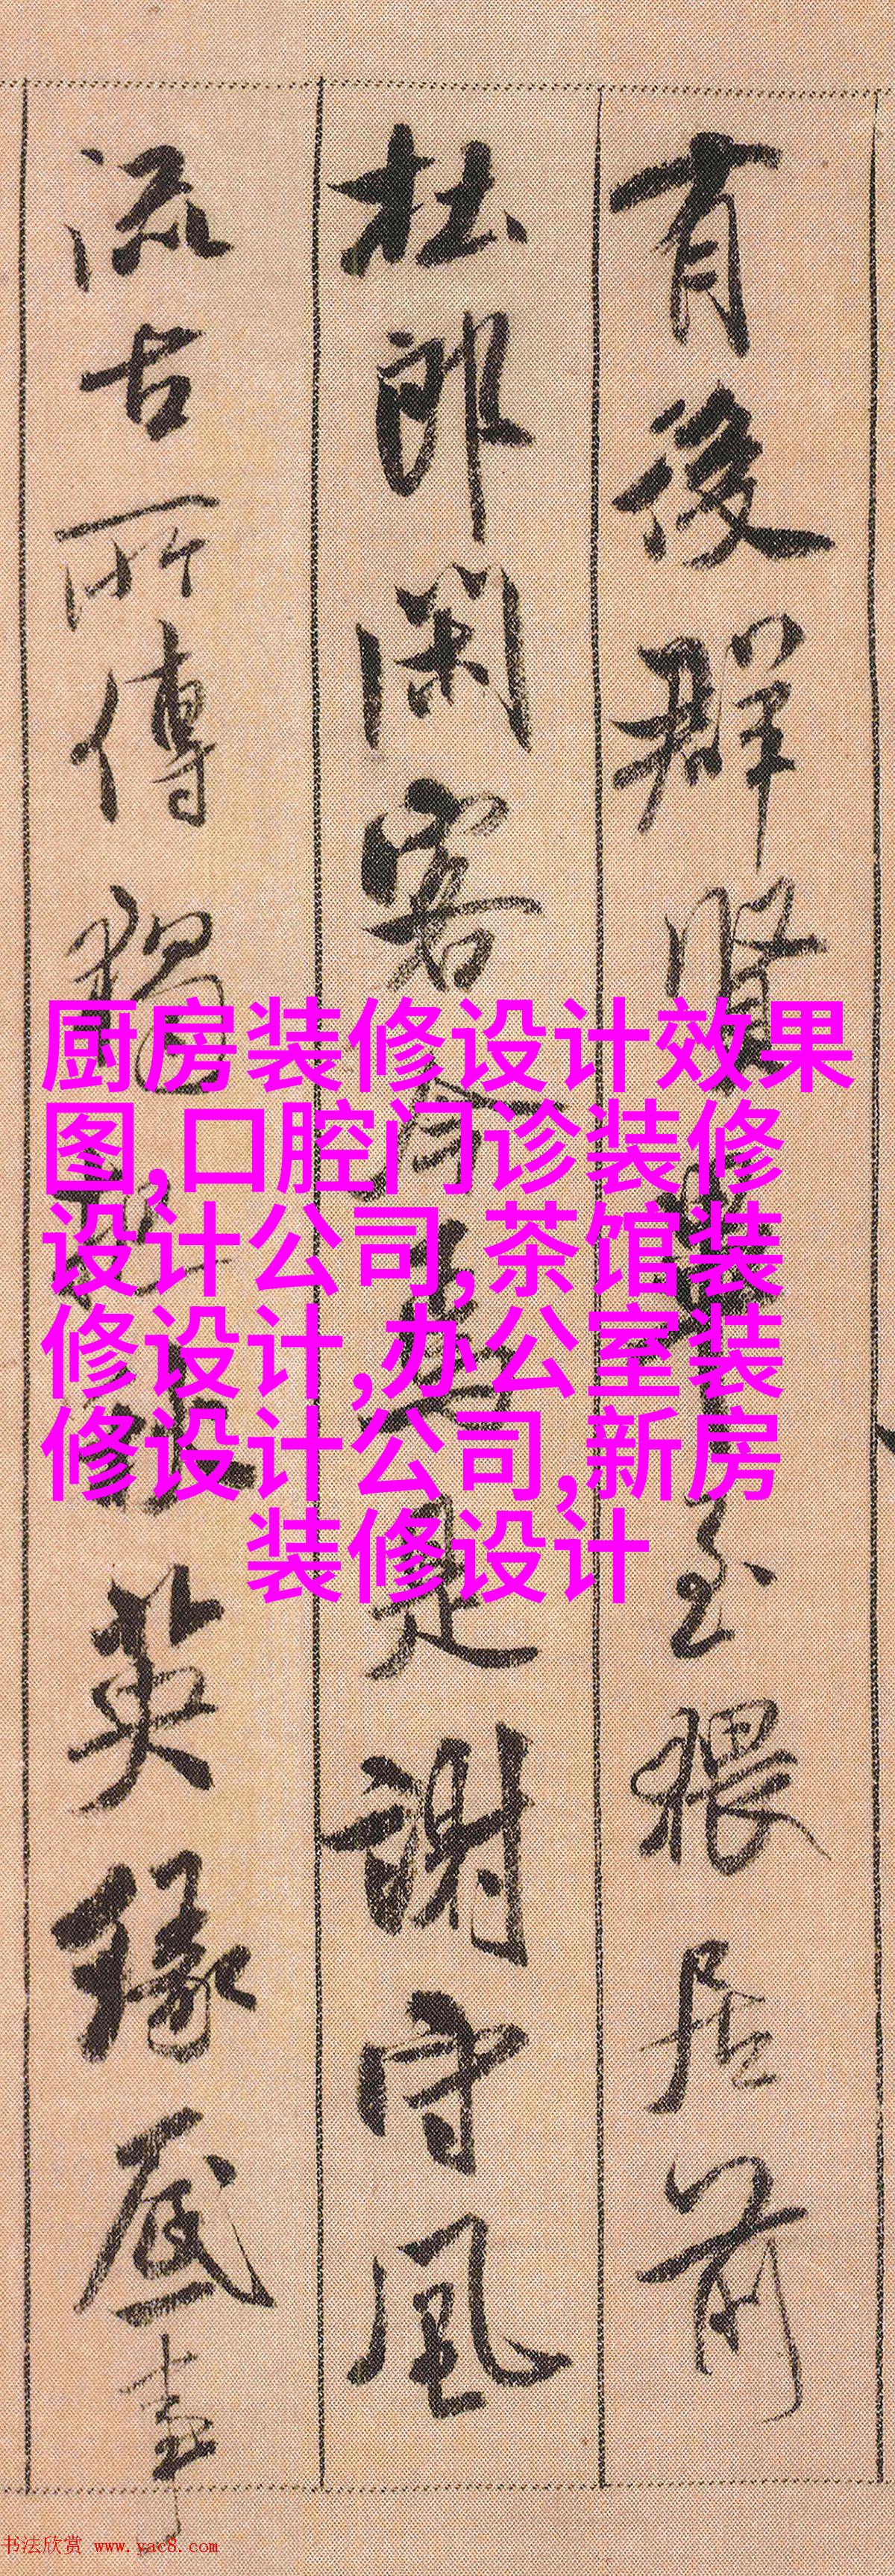 有後群賢畢至猥居前
杜郎閑客今焉是謝守風
流古所傳獨把秋英緣底事
厨房装修设计效果
图,口腔门诊装修
设计公司,茶馆装
修设计,办公室装
修设计公司,新房
装修设计
书法欣赏 www.yac8.com